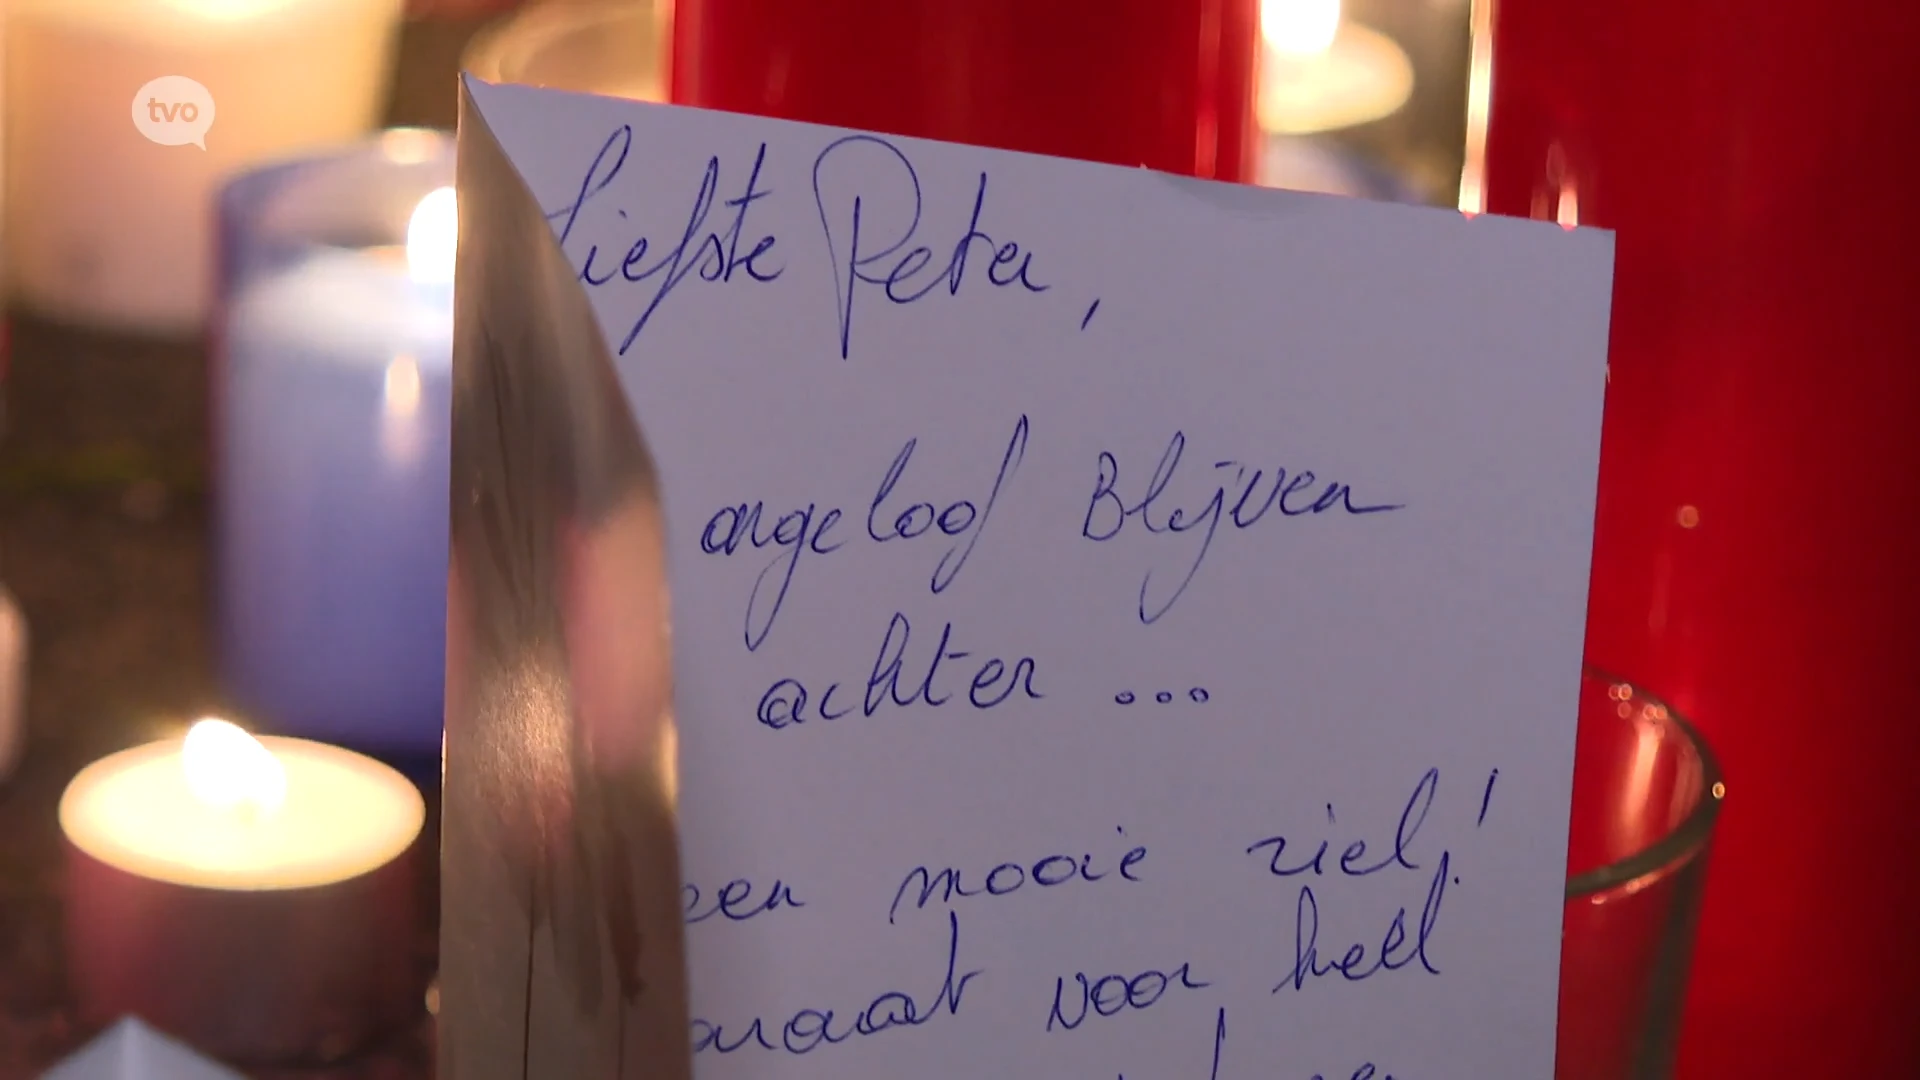 tvo
Liefste Peter,
ongeloof Blijven
achter ...
een mooie ziel!
voor heel